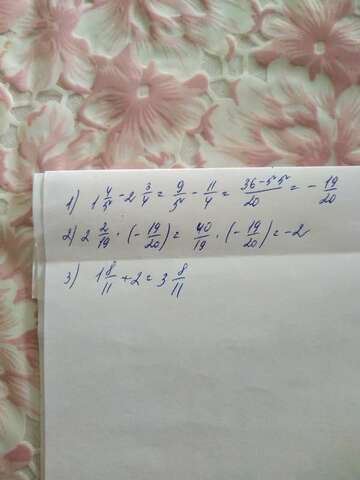 1) 1 4/5 - 2 3/4 = 9/5 - 11/4 = (36-55)/20 = - 19/20
2) 2 2/19 · (- 19/20) = 40/19 · (- 19/20) = -2
3) 1 8/11 + 2 = 3 8/11